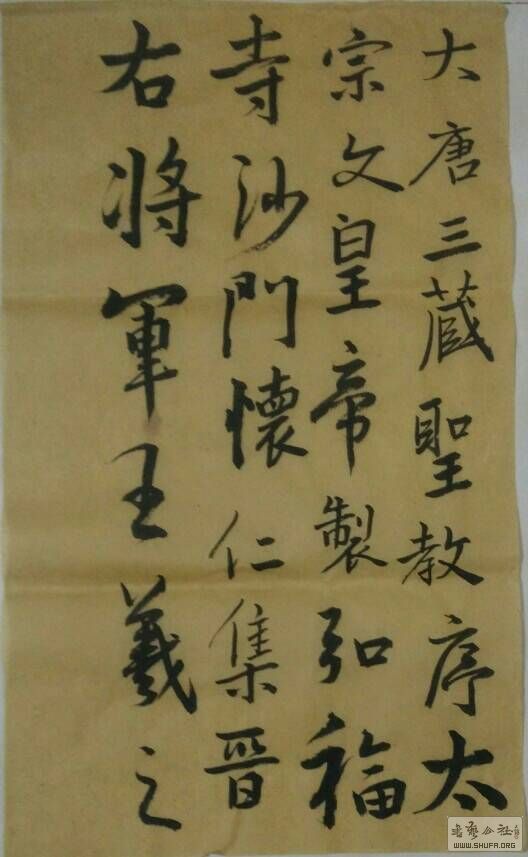 大唐三蔵聖教序太
宗文皇帝製弘福
寺沙門懷仁集晉
右将軍王羲之
书艺公社
WWW.SHUFA.ORG